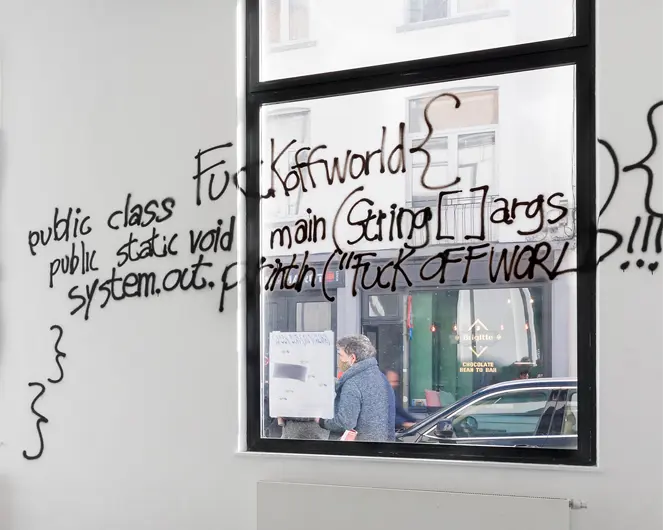 public class FuckOffworld{
public static void main (String[]args){
system.out.println("FUCK OFF WORLD!!!
}
}
Brigitte
CHOCOLATE
BEAN TO BAR